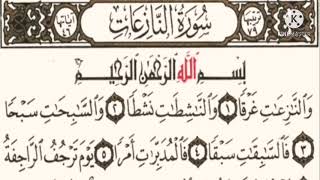 ترتيبها ٧٩ سُورَةُ النَّازِعَاتِ آياتها ٤٦
بِسْمِ اللَّهِ الرَّحْمَٰنِ الرَّحِيمِ
وَالنَّازِعَاتِ غَرْقًا ١ وَالنَّاشِطَاتِ نَشْطًا ٢ وَالسَّابِحَاتِ سَبْحًا
٣ فَالسَّابِقَاتِ سَبْقًا ٤ فَالْمُدَبِّرَاتِ أَمْرًا ٥ يَوْمَ تَرْجُفُ الرَّاجِفَةُ